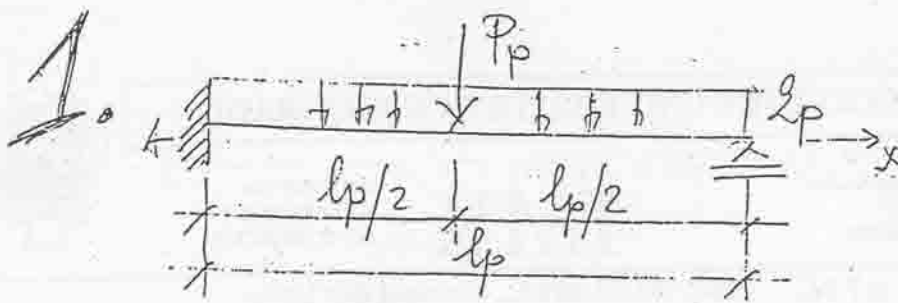 1.
Pp
qp
x
lp/2 lp/2
lp